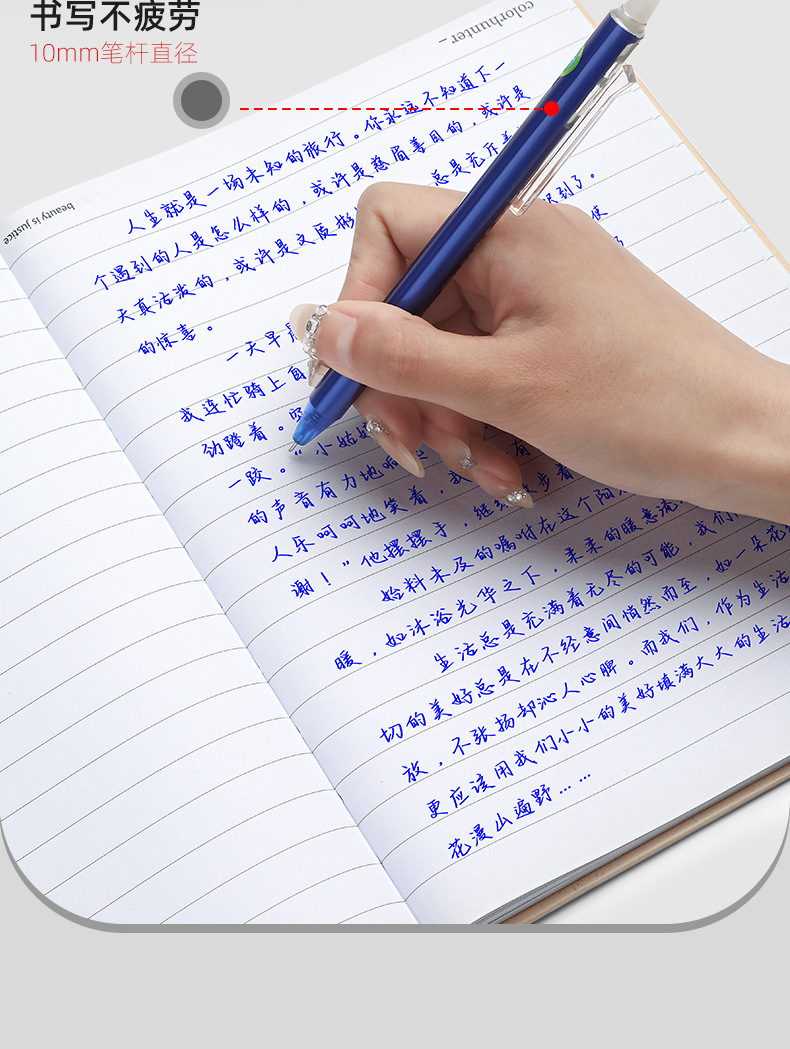 书写不疲劳
10mm笔杆直径
colorhunter
beauty is justice
人生就是一场未知的旅行。你永远不知道下一
个遇到的人是怎么样的，或许是慈眉善目的，或许是
天真活泼的，或许是文质彬 总是充斥着
的惊喜。
一天早晨 迟到了。
我连忙骑上自 使
劲蹬着。
一跤。“小姑娘 有
的声音有力地响起
人乐呵呵地笑着，我 散步着
谢！”他摆摆手，继续
始料未及的嘱咐在这个陌
暖，如沐浴光华之下，柔柔的暖意流
生活总是充满着无尽的可能，我们
切的美好总是在不经意间悄然而至，如一朵花
放，不张扬却沁人心脾。而我们，作为生活
更应该用我们小小的美好填满大大的生活
花漫山遍野……